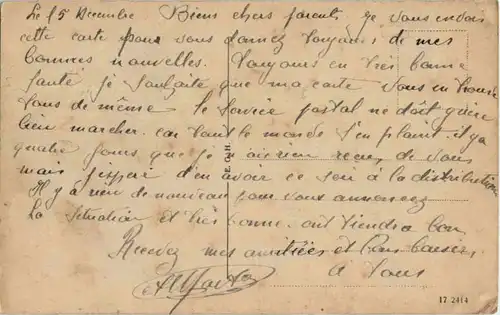 Le 15 Décembre Biens chers parents je vous envoi
cette carte pour vous donnez toujours de mes
bonnes nouvelles. Toujours en très bonne
santé je souhaite que ma carte vous en trouve
tous de même - le service postal ne doit guère
bien marcher car tout le monde s'en plaint. il y a
quatre jours que je ai rien reçu de vous
mais j'espère d'en avoir ce soir à la distribution
Il y a rien de nouveau pour vous annoncez
La situation et très bonne. ont tiendra bon
Recevez mes amitiées et bons baisers
à tous
17 2414